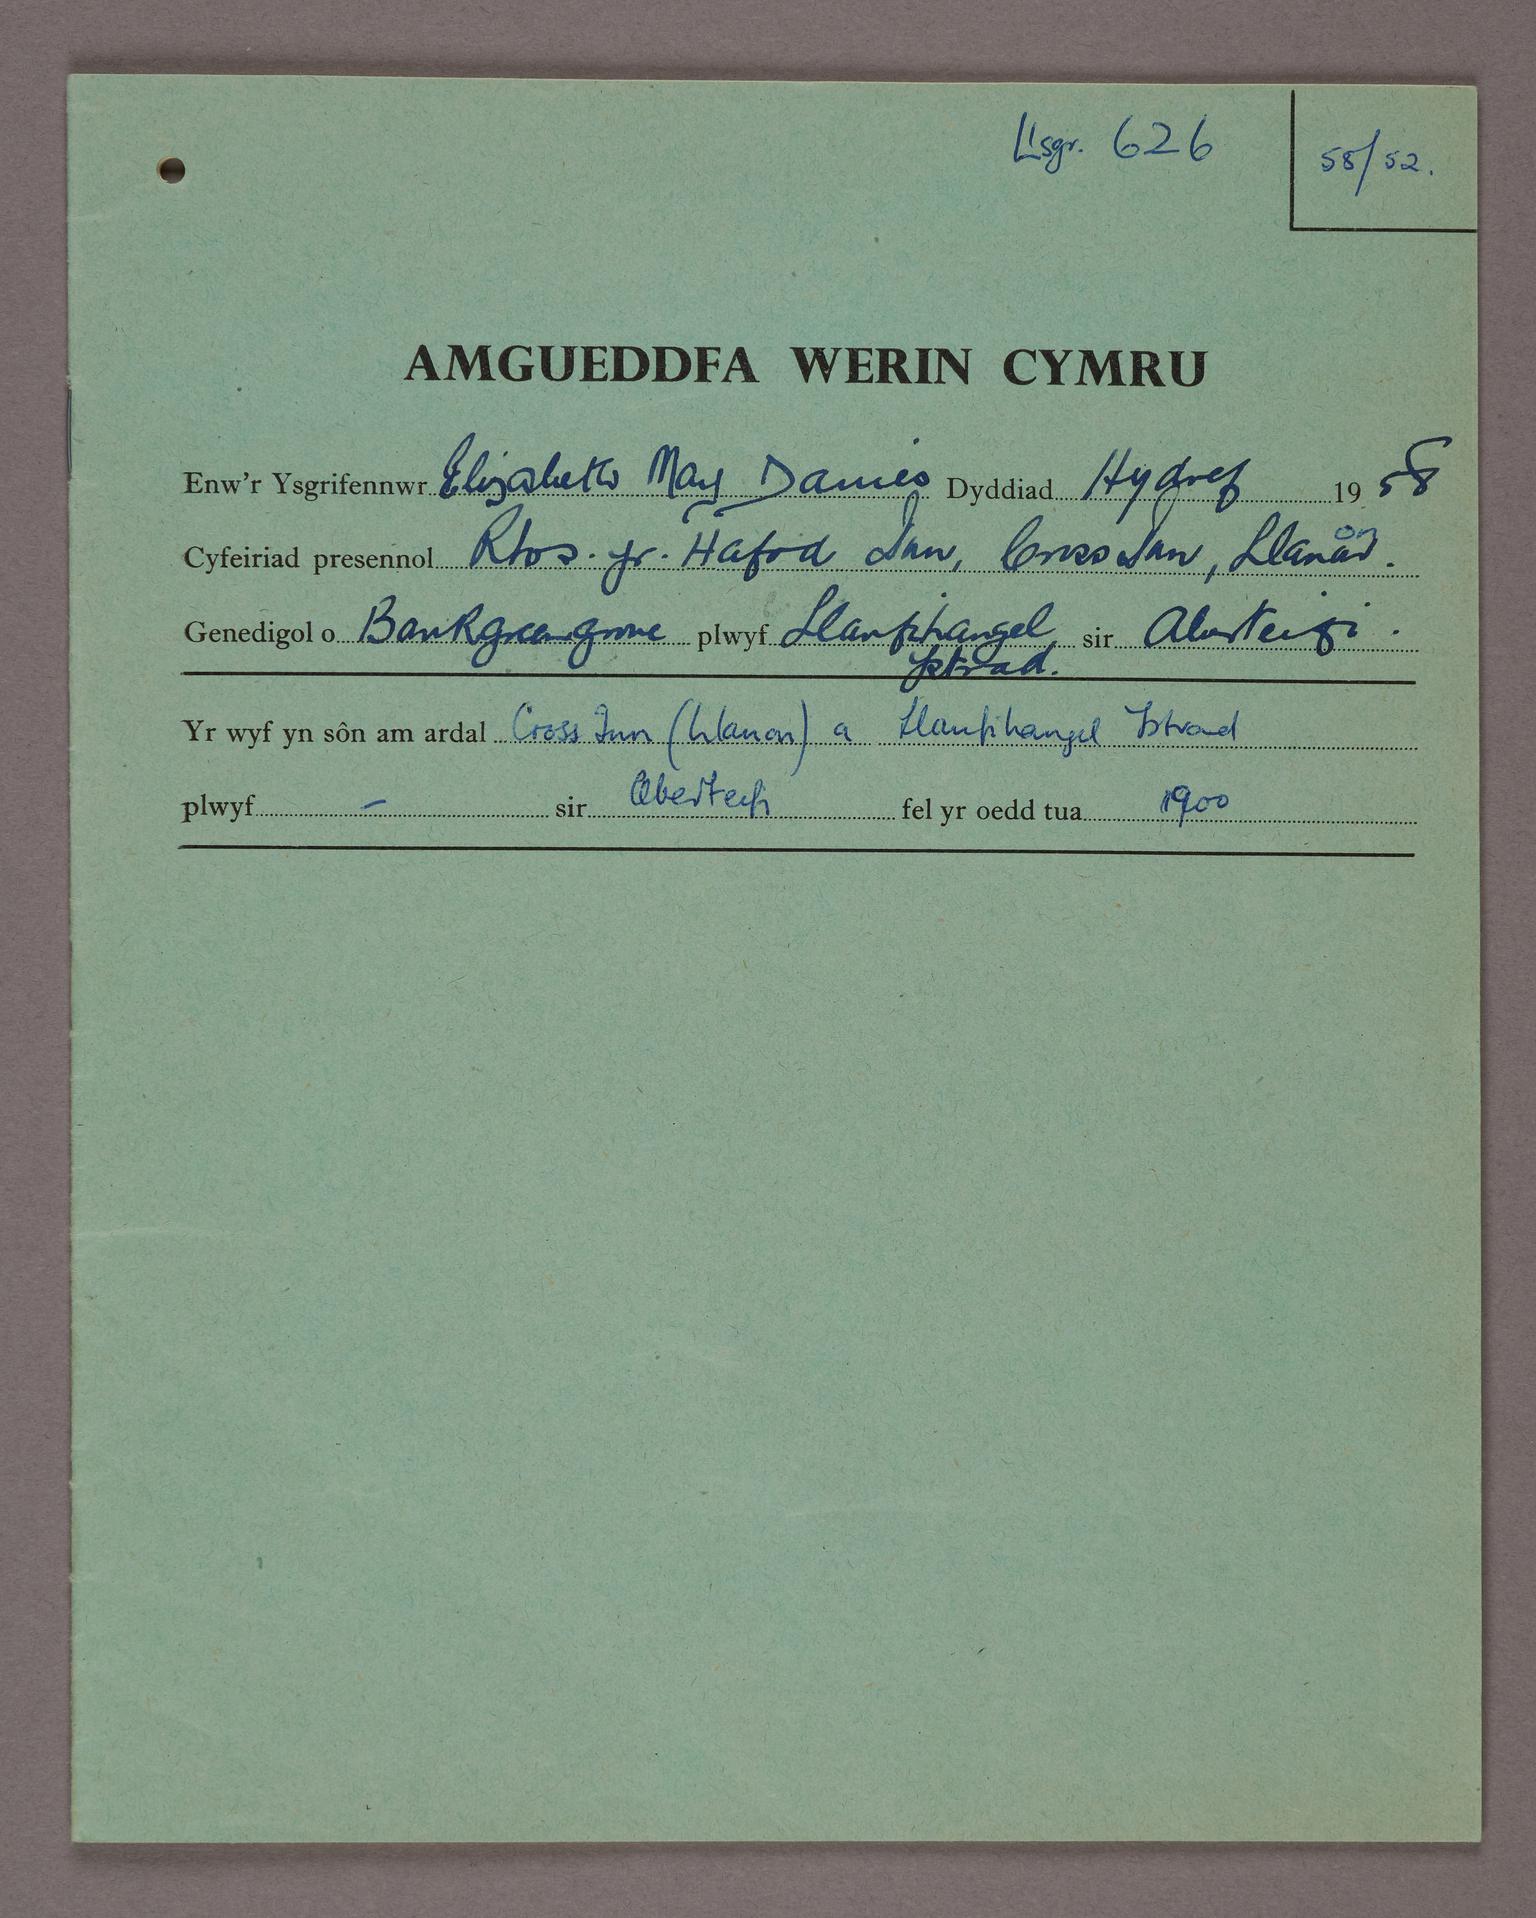 Llsgr. 626
58/52.
AMGUEDDFA WERIN CYMRU
Enw'r Ysgrifennwr Elizabeth May Davies Dyddiad Hydref 1958
Cyfeiriad presennol Rhos-yr-Hafod Inn, Cross Inn, Llanon.
Genedigol o Bankgreengrove plwyf Llanfihangel Ystrad. sir Aberteifi.
Yr wyf yn sôn am ardal Cross Inn (Llanon) a Llanfihangel Ystrad
plwyf – sir Aberteifi fel yr oedd tua 1900